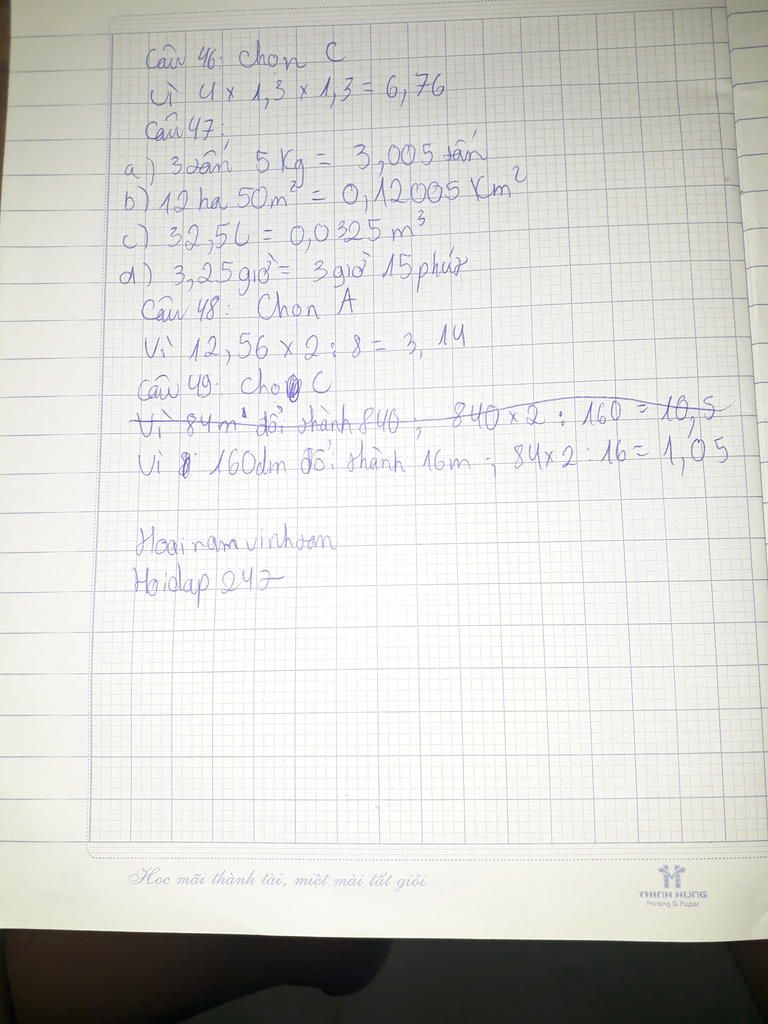 Câu 46: Chọn C
Vì 4 x 1,3 x 1,3 = 6,76
Câu 47:
a) 3 tấn 5 Kg = 3,005 tấn
b) 12 ha 50m² = 0,12005 Km²
c) 32,5L = 0,0325 m³
d) 3,25 giờ = 3 giờ 15 phút
Câu 48: Chọn A
Vì 12,56 x 2 : 8 = 3,14
Câu 49: Chọ C
Vì 84m² đổi thành 840 ; 840 x 2 : 160 = 10,5
Vì 160dm đổi thành 16m ; 84 x 2 : 16 = 1,05
Hoainamvinhtan
Hoidap 247
Học mãi thành tài, miết mài tất giỏi
THINH HUNG
Printing & Paper